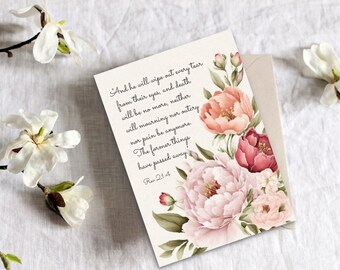 And he will wipe out every tear
from their eyes, and death
will be no more, neither
will mourning nor outcry
nor pain be anymore.
The former things
have passed away
Rev 21:4